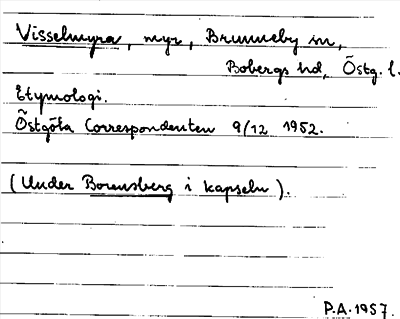 Visselmyra, myr, Brunneby sn,
Bobergs hd, Östg. l.
Etymologi.
Östgöta Correspondenten 9/12 1952.
(Under Borensberg i kapseln).
P.A. 1957.